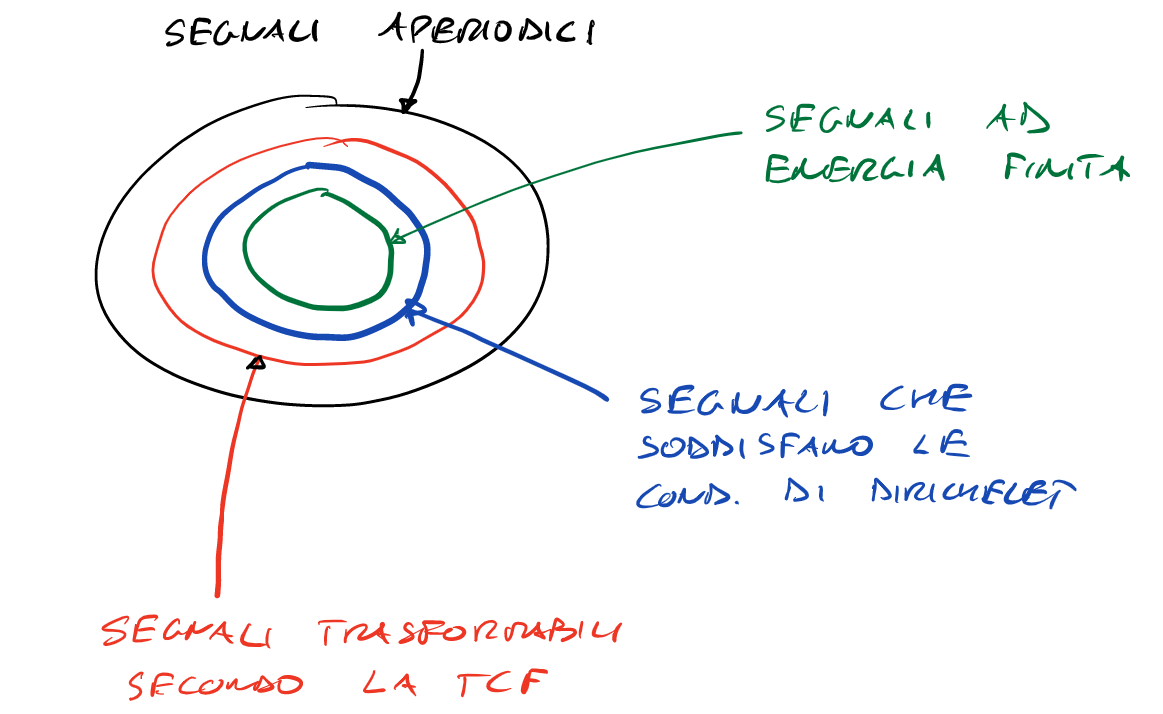 SEGNALI APERIODICI
SEGNALI AD
ENERGIA FINITA
SEGNALI CHE
SODDISFANO LE
COND. DI DIRICHELET
SEGNALI TRASFORMABILI
SECONDO LA TCF